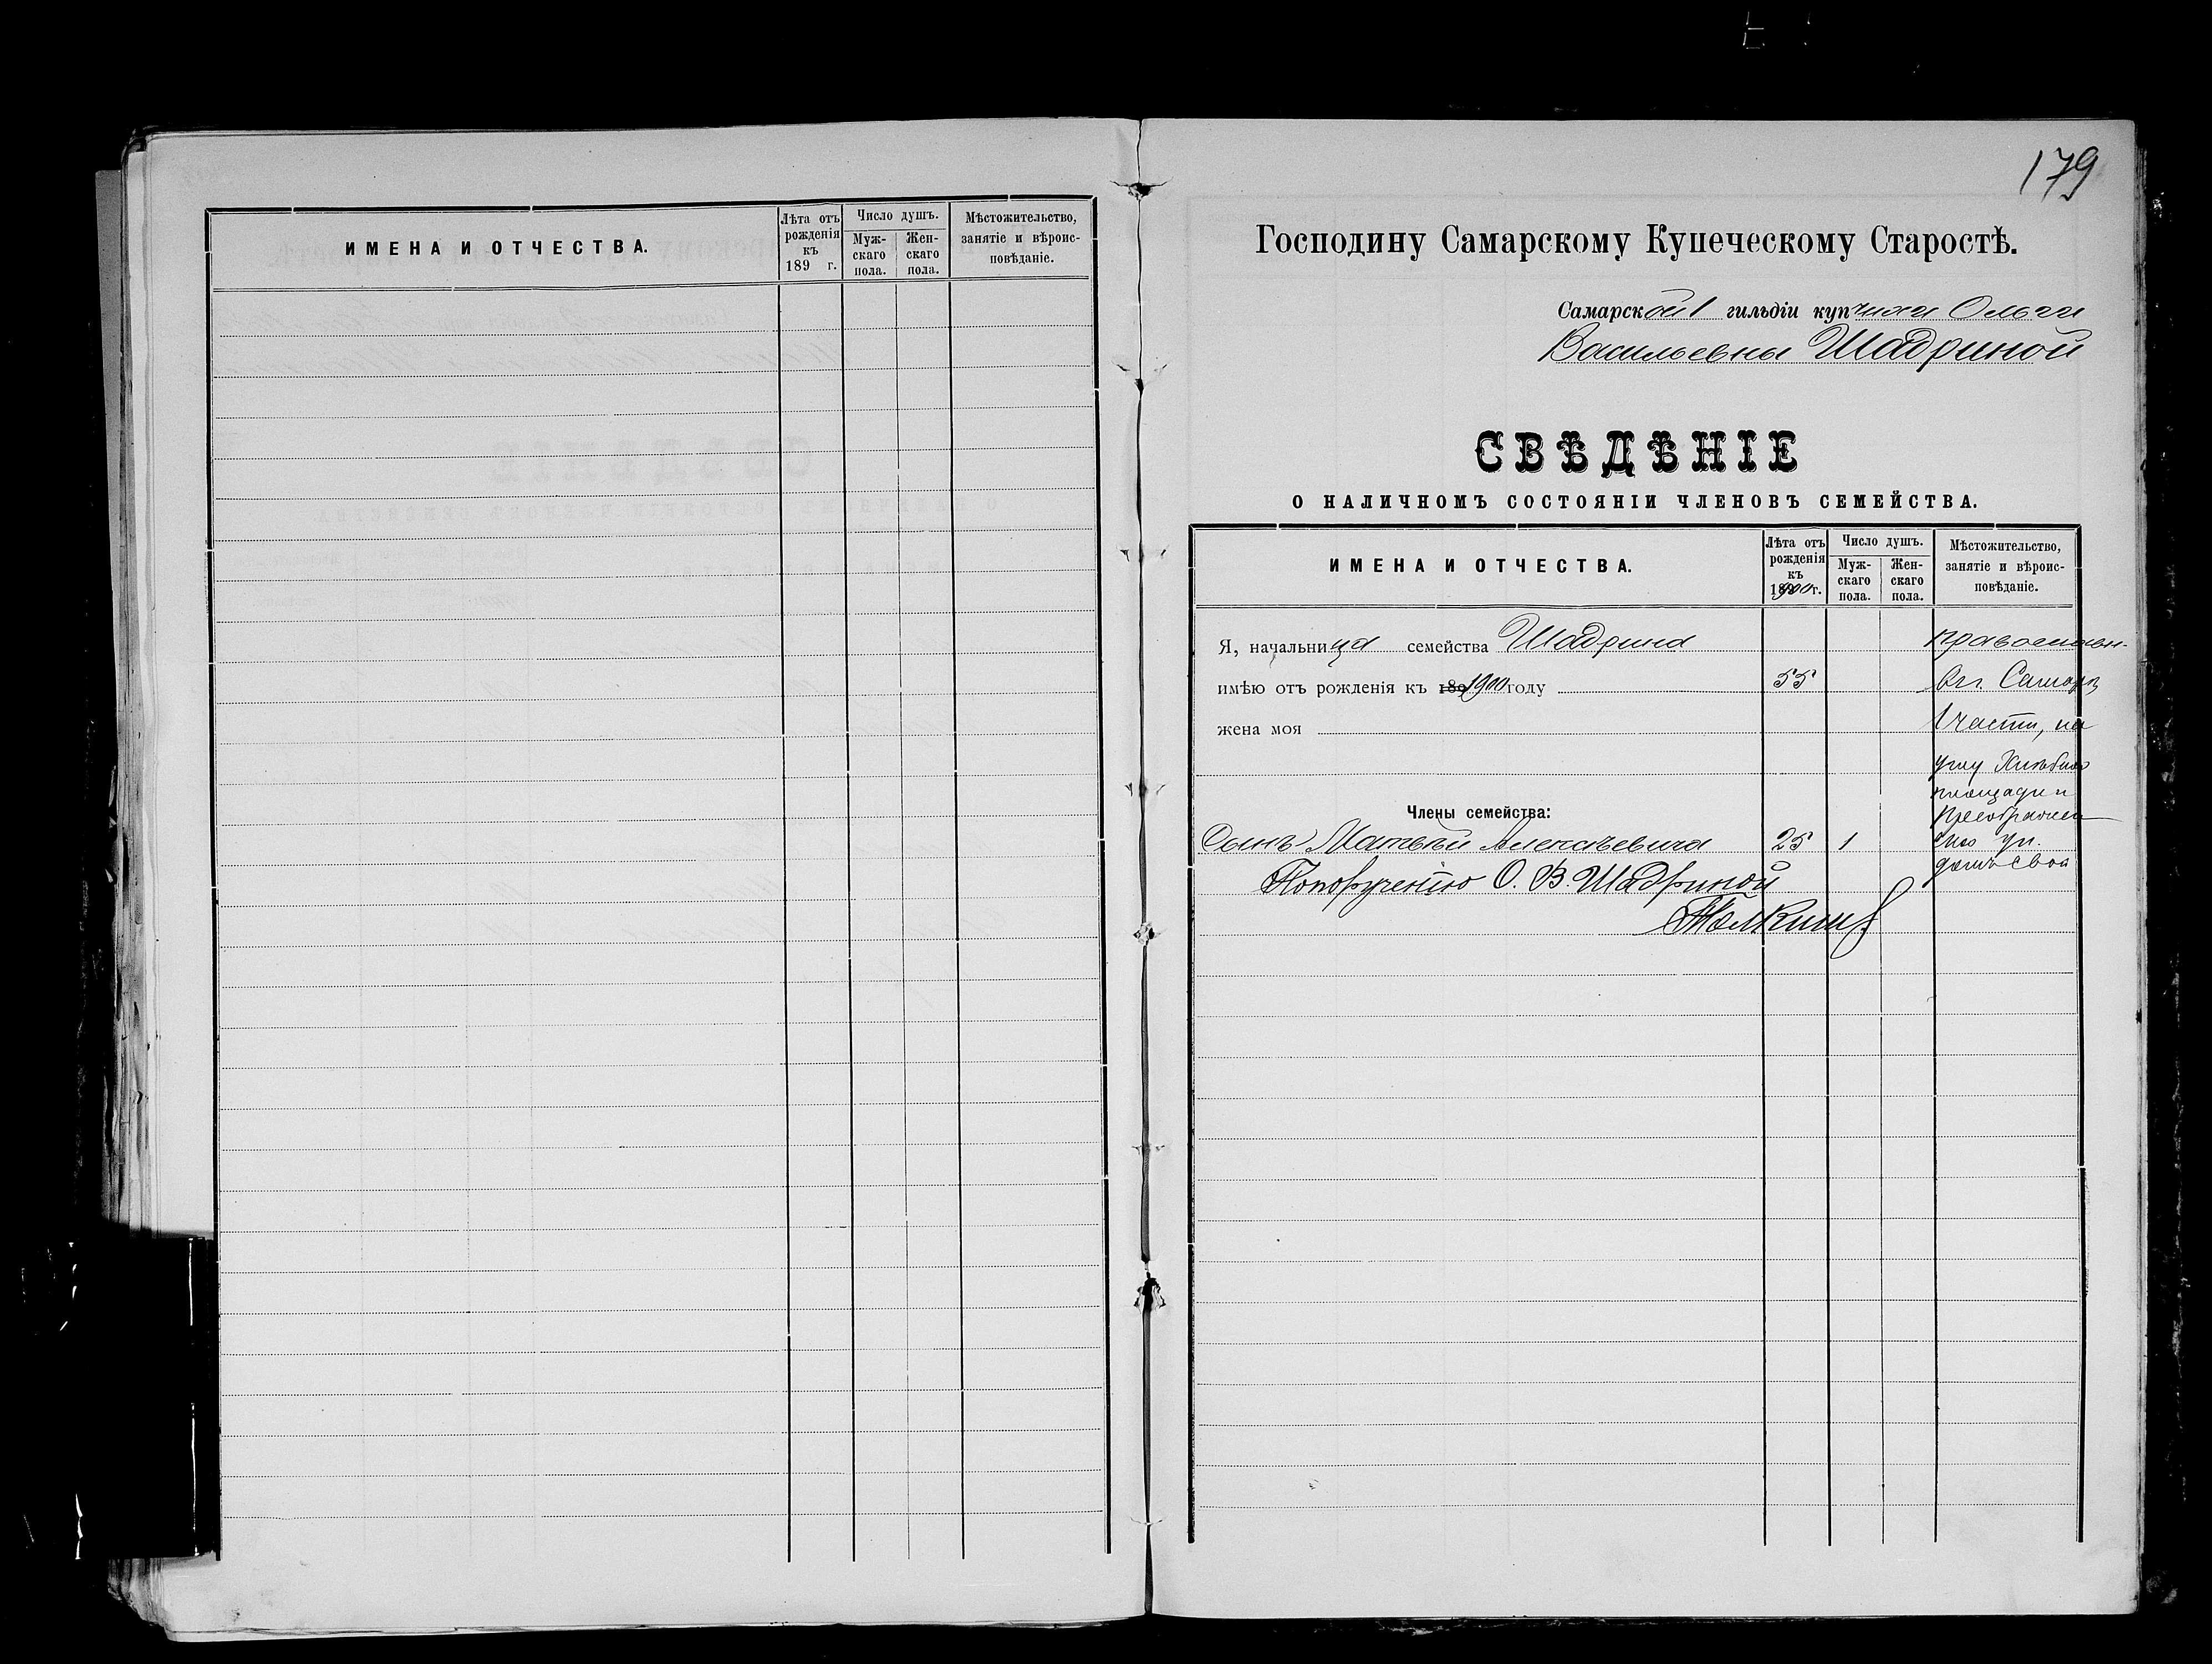 ИМЕНА И ОТЧЕСТВА.
Лѣта отъ рожденія къ 189 г.
Число душъ.
Муж-скаго пола.
Жен-скаго пола.
Мѣстожительство, занятіе и вѣроис-повѣданіе.
179
Господину Самарскому Купеческому Старостѣ.
Самарской 1 гильдіи купчихи Ольги
Васильевны Шадриной
СВѢДѢНІЕ
О НАЛИЧНОМЪ СОСТОЯНІИ ЧЛЕНОВЪ СЕМЕЙСТВА.
ИМЕНА И ОТЧЕСТВА.
Лѣта отъ рожденія къ 1900 г.
Число душъ.
Муж-скаго пола.
Жен-скаго пола.
Мѣстожительство, занятіе и вѣроис-повѣданіе.
Я, начальница семейства Шадрина
православн.
имѣю отъ рожденія къ 1900 году 55
Самарѣ
жена моя
1 части, на
углу Хлѣбной
площади и
Члены семейства:
Преображен
Сынъ Матвѣй Алексѣевичъ 25 1
ской ул.
домъ свой
По порученію О. В. Шадриной